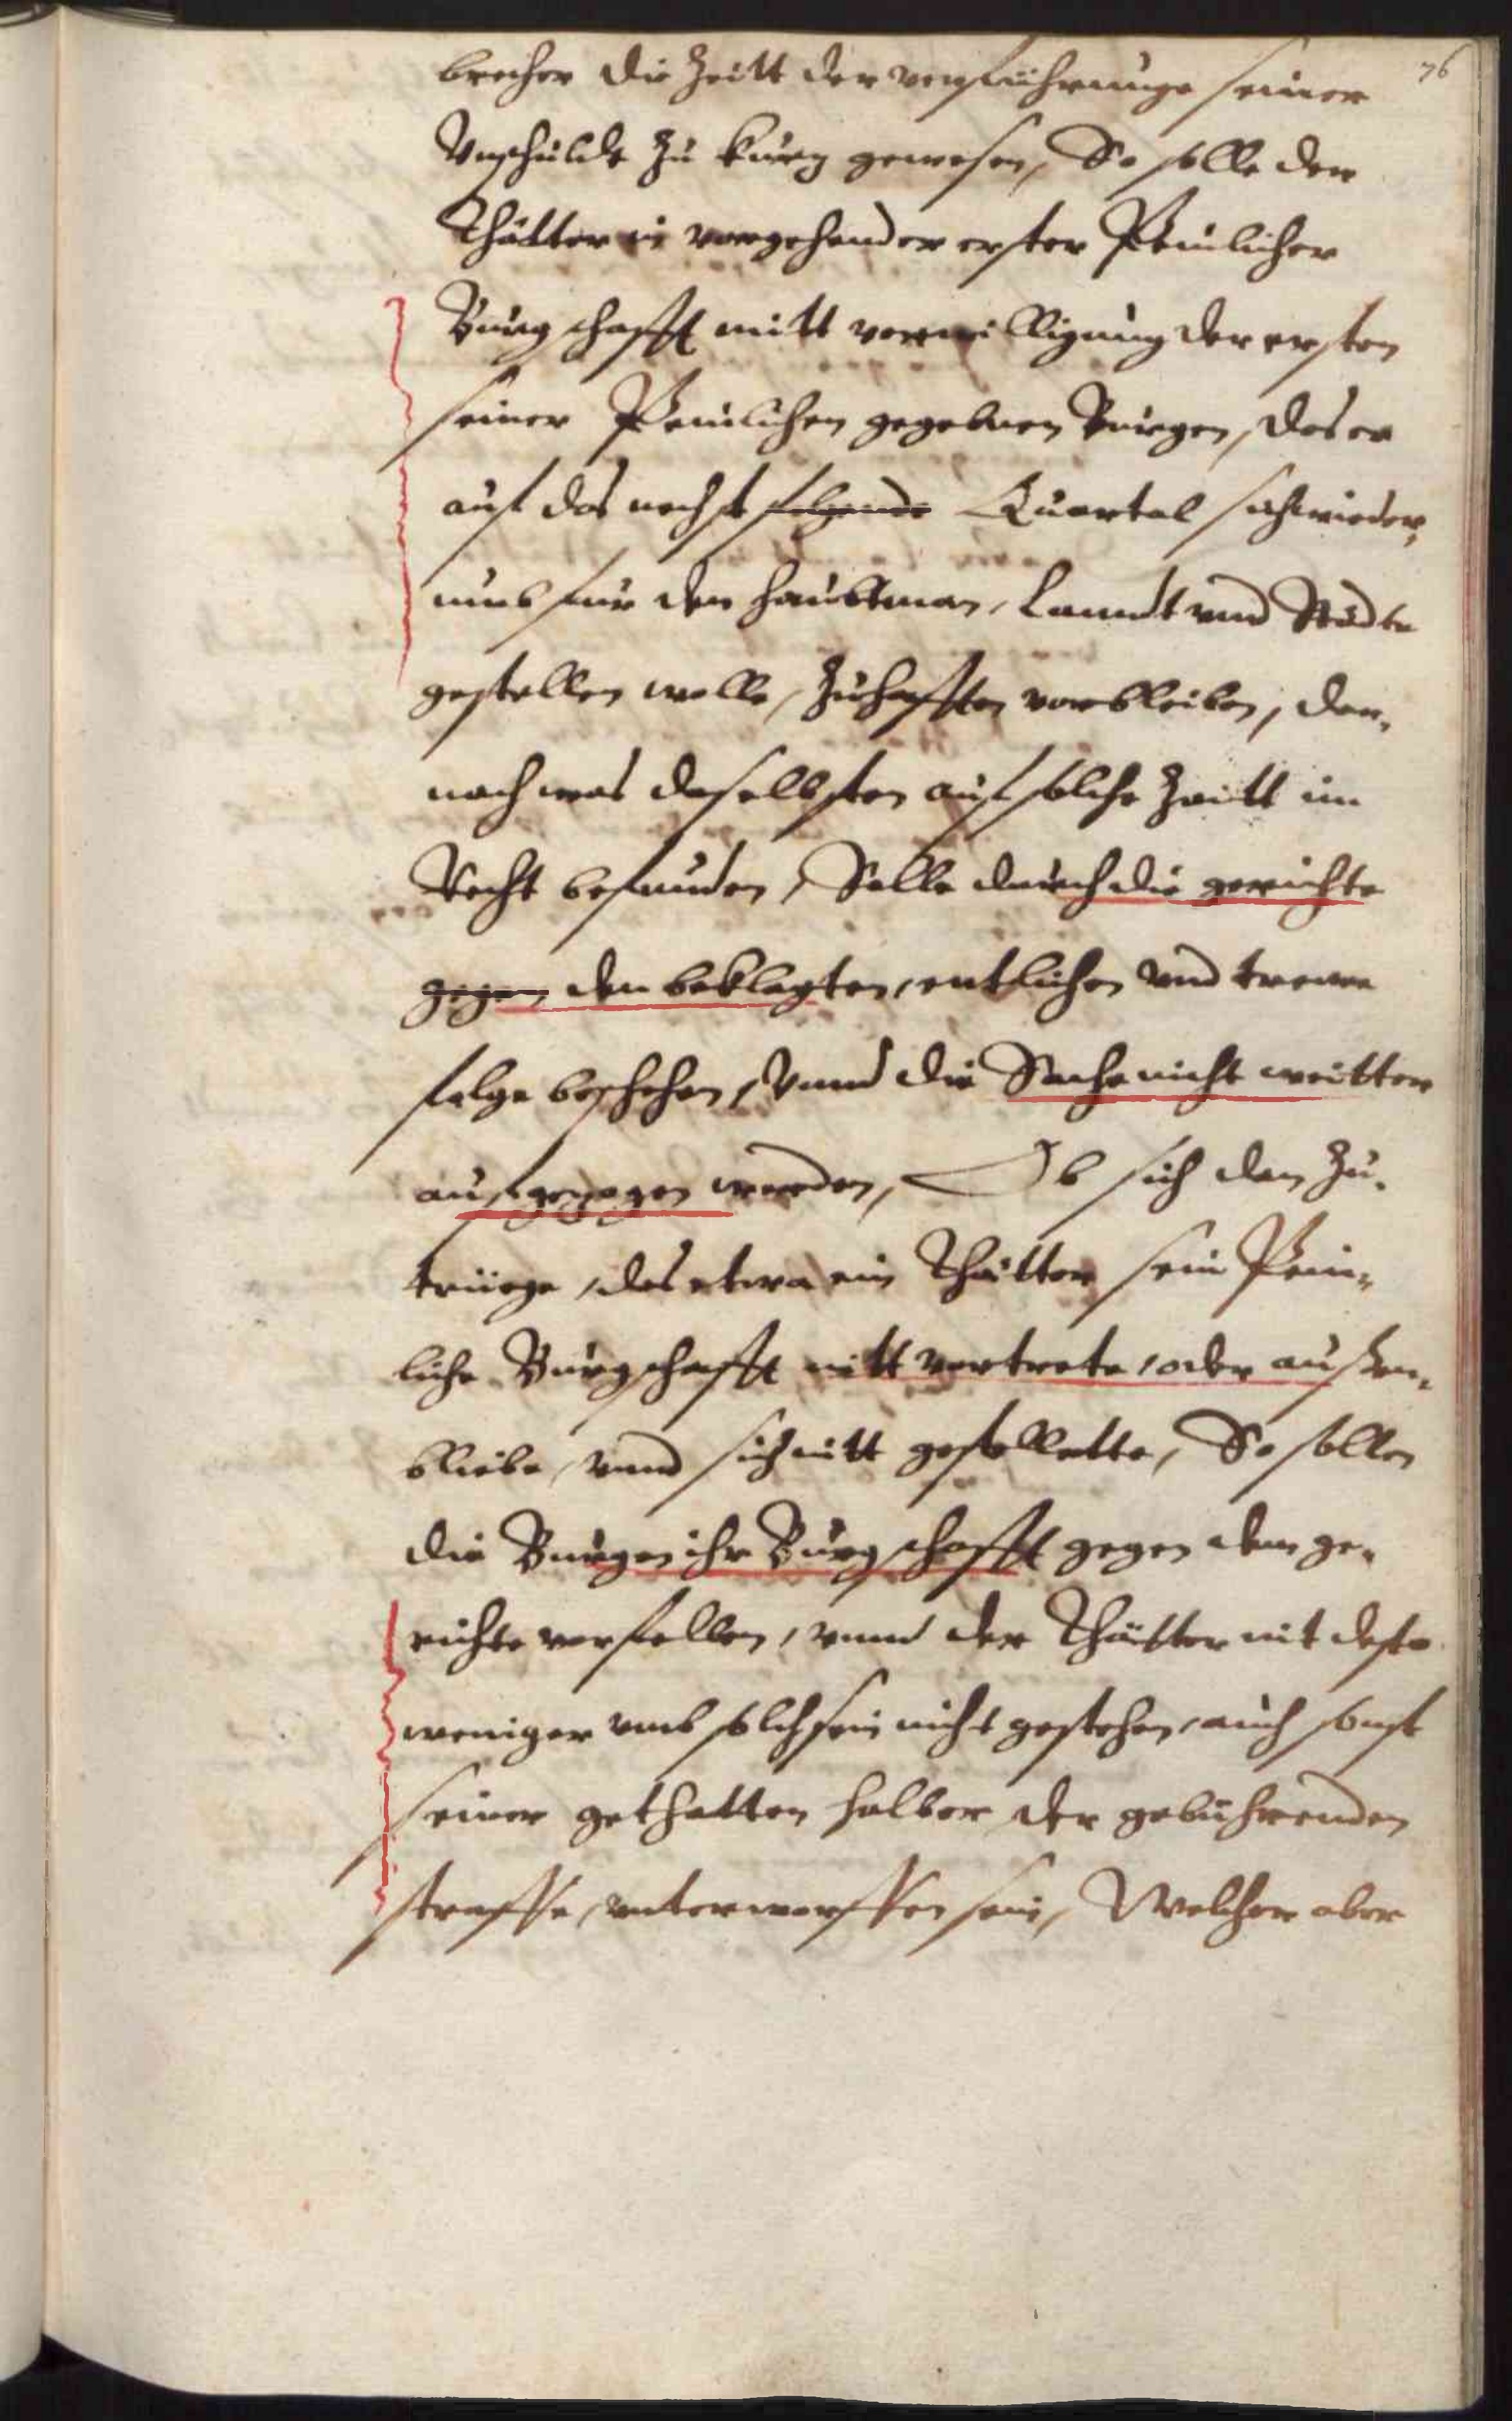 76
brecher die Zeitt der verfuhrunge seiner
Vnschulde zu kurtz gewesen, So solle der
Thätter in vorgehender erster Peinlicher
Burgschafft mitt verwilligung der ersten
seiner Peinlichen gegebnen Burgen, das er
auf das nechst folgende Quartal sich wieder,
umb fur den haubtman, Lanndt vnd Städte
gestellen wolle, Zuhafften vorbleiben, dar,
nach was daselbsten auf solche Zeitt im
Recht befunden, Solle durch die gerichte
gegen den beklagten, entlichen vnd trewe
folge beschehen, Vnnd die Sache nicht weitter
aufgezogen werden, Ob sich dan zu,
trüege, das etwa ein Thätter sein Pein,
liche Burgschafft nitt vertrete, oder aussen,
bliebe, vnnd sich nitt gestellette, So sollen
die Burgen ihr Burgschafft gegen dem ge,
richte verfallen, vnnd der Thätter nit desto
weniger vmb solch sein nicht gestehen, auch sonst
seiner gethatten halber der gebuhrenden
straffe, vnterworffen sein, Welcher aber